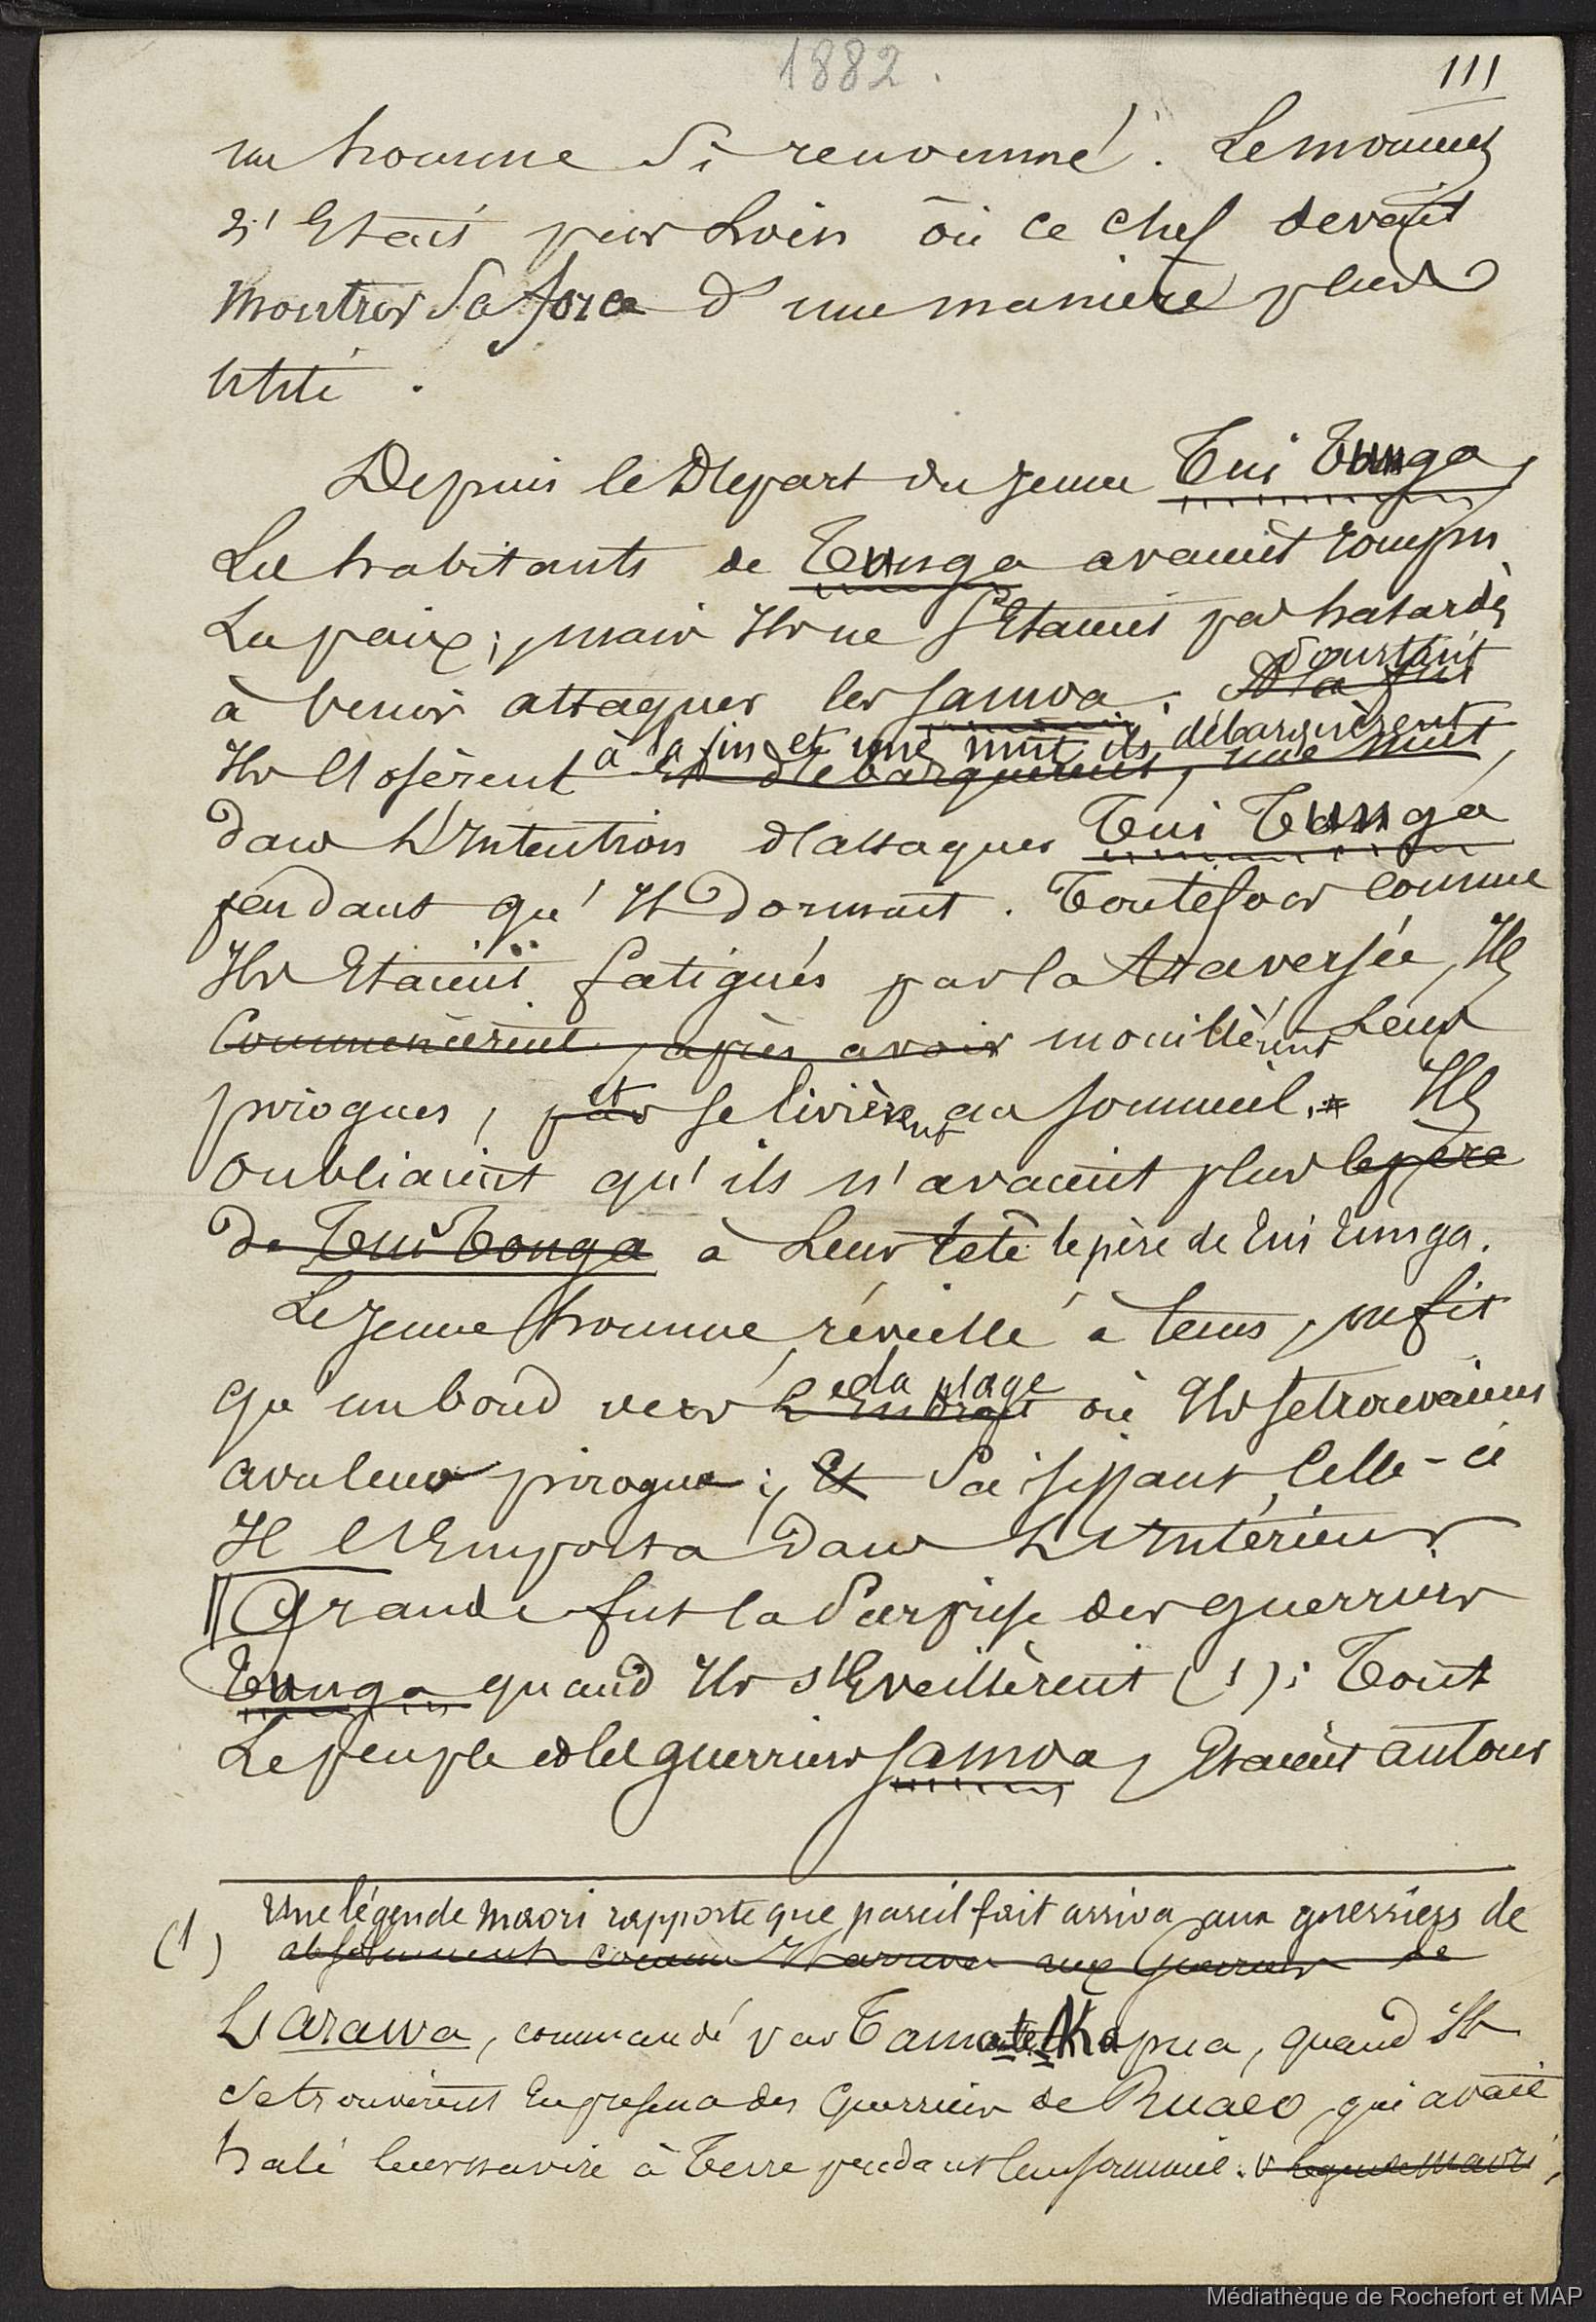 1882.
111
un homme si renommé. Le moment
n'était pas loin où ce chef devait
montrer sa force d'une manière plus
utile.
Depuis le départ du jeune Tui Tunga,
les habitants de Tunga avaient rompu
la paix; mais ils ne s'étaient pas hasardés
pourtant
à venir attaquer les Samoa. A la fin
à la fin et une nuit ils débarquèrent
Ils l'osèrent et débarquèrent, une nuit,
dans l'intention d'attaquer Tui Tunga
pendant qu'il dormait. Toutefois comme
ils étaient fatigués par la traversée, ils
commencèrent, après avoir mouillèrent leurs
pirogues, et se livrèrent au sommeil. Ils
oubliaient qu'ils n'avaient plus le père
de Tui Tonga à leur tête le père de Tui Tunga.
Le jeune homme, réveillé à tems, ne fit
qu'un bond vers l'endroit où ils se trouvaient
la plage
avec leur pirogue; et saisissant celle-ci
il l'emporta dans l'intérieur.
Grande fut la surprise des guerriers
Tunga quand ils s'éveillèrent (1): Tout
le peuple et les guerriers Samoa, étaient autour
Une légende maori rapporte que pareil fait arriva aux guerriers de
(1) absolument comme il arriva aux guerriers de
L'Arawa, commandé par Tama te Kapua, quand ils
se trouvèrent en présence des guerriers de Ruaeo, qui avait
halé leur navire à terre pendant leur sommeil. v. légende maori,
Médiathèque de Rochefort et MAP